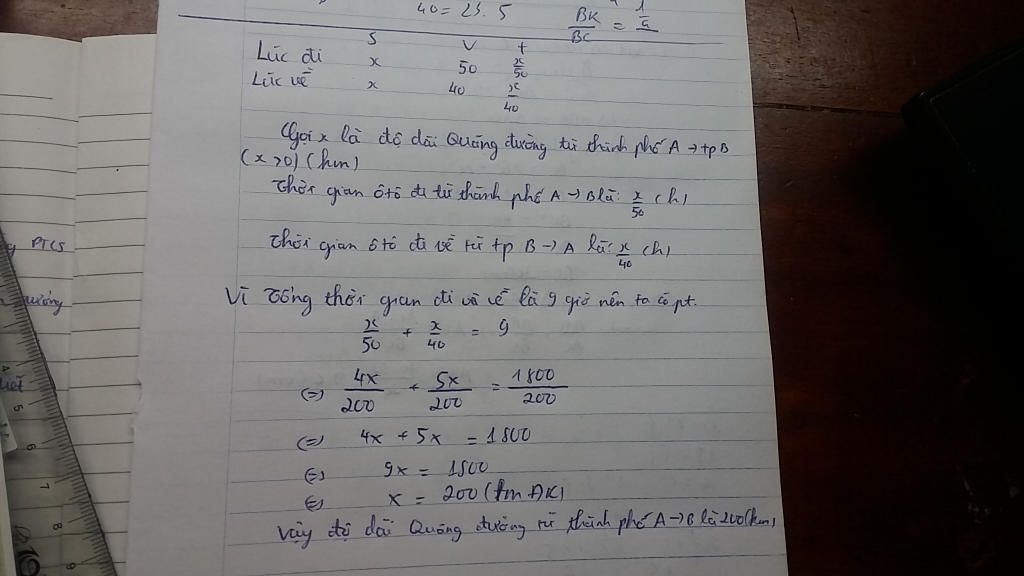 40 = 2³. 5
BK/BC = 1/4
S V t
Lúc đi x 50 x/50
Lúc về x 40 x/40
Gọi x là độ dài Quãng đường từ thành phố A → tp B
(x >0) (km)
Thời gian ôtô đi từ thành phố A → B là: x/50 (h)
Thời gian ôtô đi về từ tp B → A là: x/40 (h)
Vì tổng thời gian đi và về là 9 giờ nên ta có pt.
x/50 + x/40 = 9
(=) 4x/200 + 5x/200 = 1800/200
(=) 4x + 5x = 1800
(=) 9x = 1800
(=) x = 200 (tm ĐK)
Vậy độ dài Quãng đường từ thành phố A → B là 200(km)
PTCS
5
6
7
8
9
10